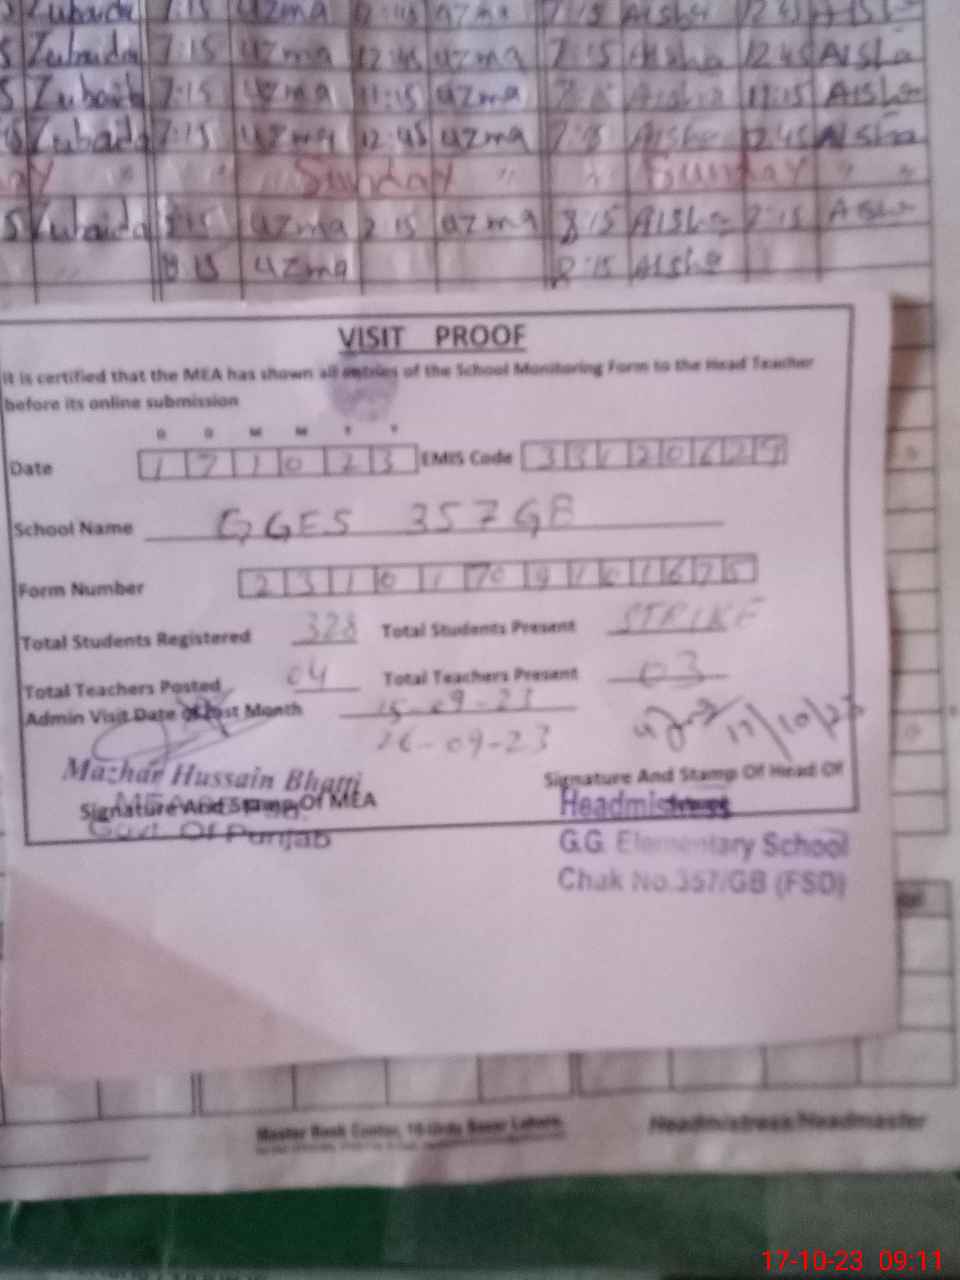 Zubaida 7:15 uzma 12:45 uzma 7:15 Aisha 12:45 Aisha
Zubaida 7:15 uzma 12:45 uzma 7:15 Aisha 12:45 Aisha
Zubaida 7:15 uzma 11:15 uzma Aisha 11:15 Aisha
Zubaida 7:15 uzma 12:45 uzma 7:15 Aisha 12:45 Aisha
Sunday " " Sunday " "
Zubaida 8:15 uzma 2:15 uzma 8:15 Aisha 2:15 Aisha
8:15 uzma 8:15 Aisha
VISIT PROOF
It is certified that the MEA has shown all entries of the School Monitoring Form to the Head Teacher
before its online submission
D D M M Y Y
Date 171023 EMIS Code 33120629
School Name GGES 357GB
Form Number
Total Students Registered 328 Total Students Present STRIKE
Total Teachers Posted 04 Total Teachers Present 03
Admin Visit Date of Last Month 15-09-23
16-09-23 17/10/23
Mazhar Hussain Bhatti Signature And Stamp Of Head Of
Signature And Stamp Of MEA Headmistress
Govt. Of Punjab G.G. Elementary School
Chak No.357/GB (FSD)
Master Book Center, Lahore. Headmistress/Headmaster
17-10-23 09:11